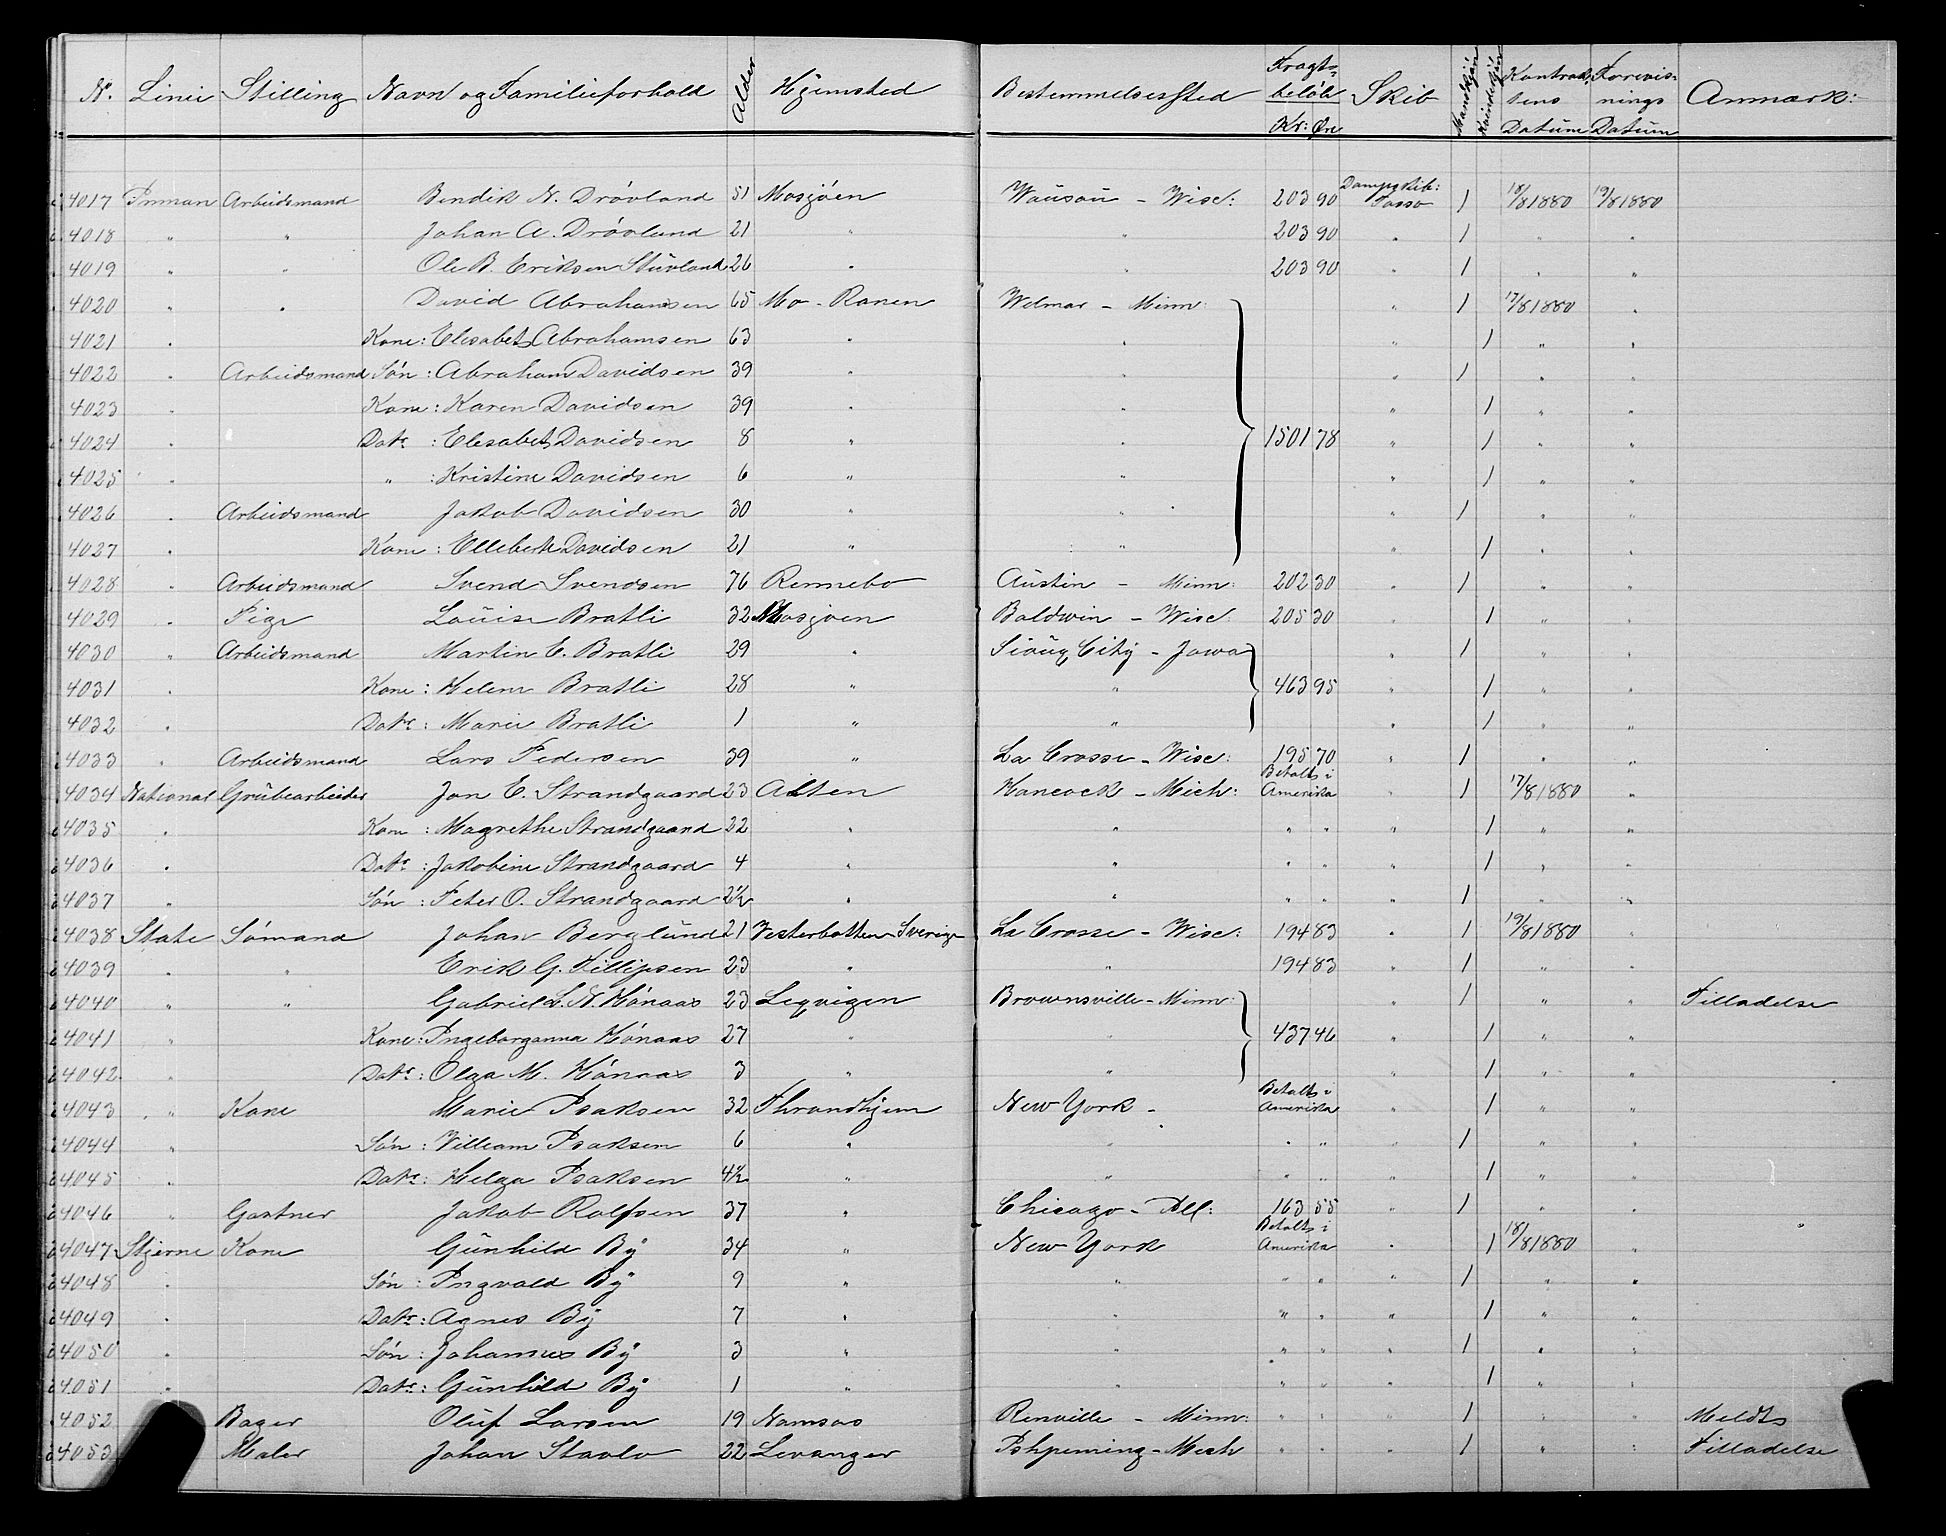 No. Linie Stilling Navn og Familieforhold Alder Hjemsted Bestemmelsessted Fragtbeløb Kr: Øre Skib Mandkjøn Kvindekjøn Kontraktens Datum Forevisnings Datum Anmærk:
4017 Inman Arbeidsmand Bendik N. Drövland 51 Mosjöen Wausau - Wisc: 203 90 Dampskib: Tasso 1 18/8 1880 19/8 1880
4018 " " Johan A. Drövland 21 " " 203 90 " 1 " "
4019 " " Ole B. Eriksen Stuvland 26 " " 203 90 " 1 " "
4020 " " David Abrahamsen 65 Mo - Ranen Welmar - Minn: " 1 17/8 1880 "
4021 " Kone: Elesabet Abrahamsen 63 " " " 1 " "
4022 " Arbeidsmand Sön: Abraham Davidsen 39 " " " 1 " "
4023 " Kone: Karen Davidsen 39 " " " 1 " "
4024 " Datr: Elesabet Davidsen 8 " " 1501 78 " 1 " "
4025 " " : Kristine Davidsen 6 " " " 1 " "
4026 " Arbeidsmand Jakob Davidsen 30 " " " 1 " "
4027 " Kone: Elleberte Davidsen 21 " " " 1 " "
4028 " Arbeidsmand Svend Svendsen 76 Rennebo Austin - Minn: 202 30 " 1 " "
4029 " Pige Louise Bratli 32 Mosjöen Baldwin - Wisc: 205 30 " 1 " "
4030 " Arbeidsmand Martin E. Bratli 29 " Sioux City - Jowa " 1 " "
4031 " Kone: Helene Bratli 28 " " 463 95 " 1 " "
4032 " Datr: Marie Bratli 1 " " " 1 " "
4033 " Arbeidsmand Lars Pedersen 39 " La Crosse - Wisc: 195 70 " 1 " "
4034 National Grubearbeider Jon E. Strandgaard 23 Alten Hancock - Mich: Betalt i Amerika " 1 17/8 1880 "
4035 " Kone: Magrethe Strandgaard 22 " " " " 1 " "
4036 " Datr: Jakobine Strandgaard 4 " " " " 1 " "
4037 " Sön: Peter O. Strandgaard 2½ " " " " " 1 " "
4038 State Sömand Johan Berglund 21 Vesterbotten Sverige La Crosse - Wisc: 194 83 " 1 19/8 1880 "
4039 " " Erik G. Fillipsen 23 " " 194 83 " 1 " "
4040 " " Gabriel L. N. Hönaas 23 Lexvigen Brownsville - Minn: " 1 " " Filladelse
4041 " Kone: Ingeborganna Hönaas 27 " " 437 46 " 1 " "
4042 " Datr: Olga M. Hönaas 3 " " " 1 " "
4043 " Kone Marie Isaksen 32 Throndhjem New York - Betalt i Amerika " 1 " "
4044 " Sön: Villiam Isaksen 6 " " " " " 1 " "
4045 " Datr: Helga Isaksen 4½ " " " " " 1 " "
4046 " Gartner Jakob Rolfsen 37 " Chicago - Ill: 163 55 " 1 " "
4047 Stjerne Kone Gunhild By 34 " New York Betalt i Amerika " 1 18/8 1880 "
4048 " Sön: Ingvald By 9 " " " " " 1 " "
4049 " Datr: Agnes By 7 " " " " " 1 " "
4050 " Sön: Johannes By 3 " " " " " 1 " "
4051 " Datr: Gunhild By 1 " " " " " 1 " "
4052 Bager Oluf Larsen 19 Namsos Renville - Minn: " " " 1 " " Meldt
4053 Maler Johan Stavlo 22 Levanger Ishpeming - Mich " " " 1 " " Filladelse